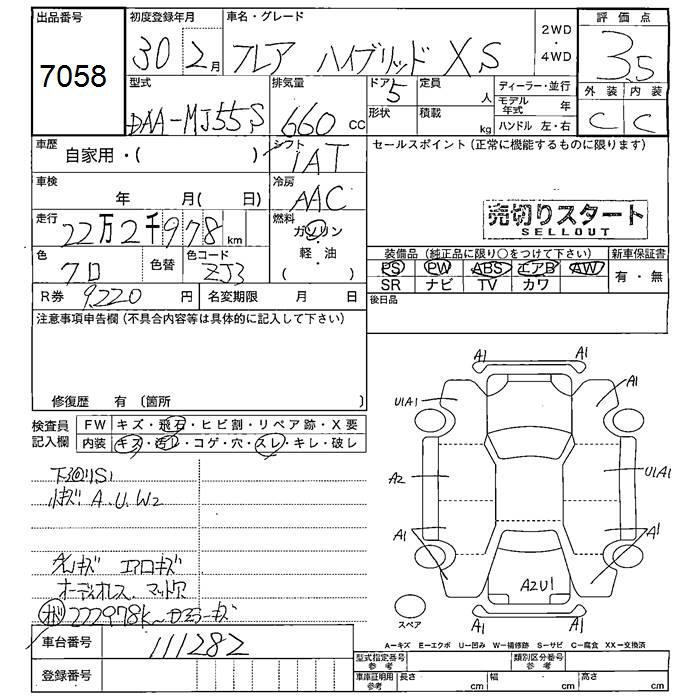 出品番号
7058
初度登録年月
30 2月
車名・グレード
フレア ハイブリッド XS
2WD
4WD
評価点
3.5
外装 内装
C C
型式
DAA-MJ55S
排気量
660 cc
ドア
5
形状
定員
人
積載
kg
ディーラー・並行
モデル年式 年
ハンドル 左・右
車歴
自家用・( )
シフト
IAT
セールスポイント(正常に機能するものに限ります)
車検
年 月( 日)
冷房
AAC
売切りスタート
SELLOUT
走行
22万2千978 km
燃料
ガソリン
軽・油
( )
色
クロ
色替
色コード
ZJ3
装備品(純正品に限り○をつけて下さい)
新車保証書
PS PW ABS エアB AW
SR ナビ TV カワ
有・無
R券 9,220 円
名変期限 月 日
後日品
注意事項申告欄(不具合内容等は具体的に記入して下さい)
修復歴 有(箇所 )
検査員
記入欄
FW キズ・飛石・ヒビ割・リペア跡・X要
内装 キズ・汚レ・コゲ・穴・スレ・キレ・破レ
小キズ A.U.W2
エアロキズ
オーディオレス.マット穴
222978K~
車台番号
111282
登録番号
A1
A1
U1A1
A1
A2
U1A1
A1
A1
A2U1
スペア
A-キズ E-エクボ U-凹み W-補修跡 S-サビ C-腐食 XX-交換済
型式指定番号
参考
類別区分番号
参考
車庫証明用
参考
長さ cm
幅 cm
高さ cm